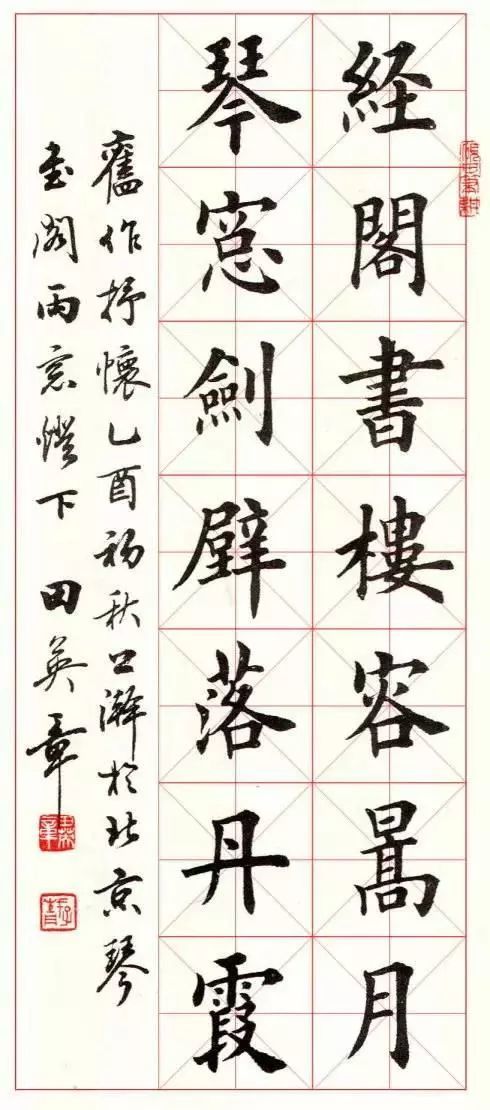 経閣書樓容暠月
琴窓劍壁落丹霞
舊作抒懷乙酉初秋上澣於北京琴
书閣雨窓燈下田英章